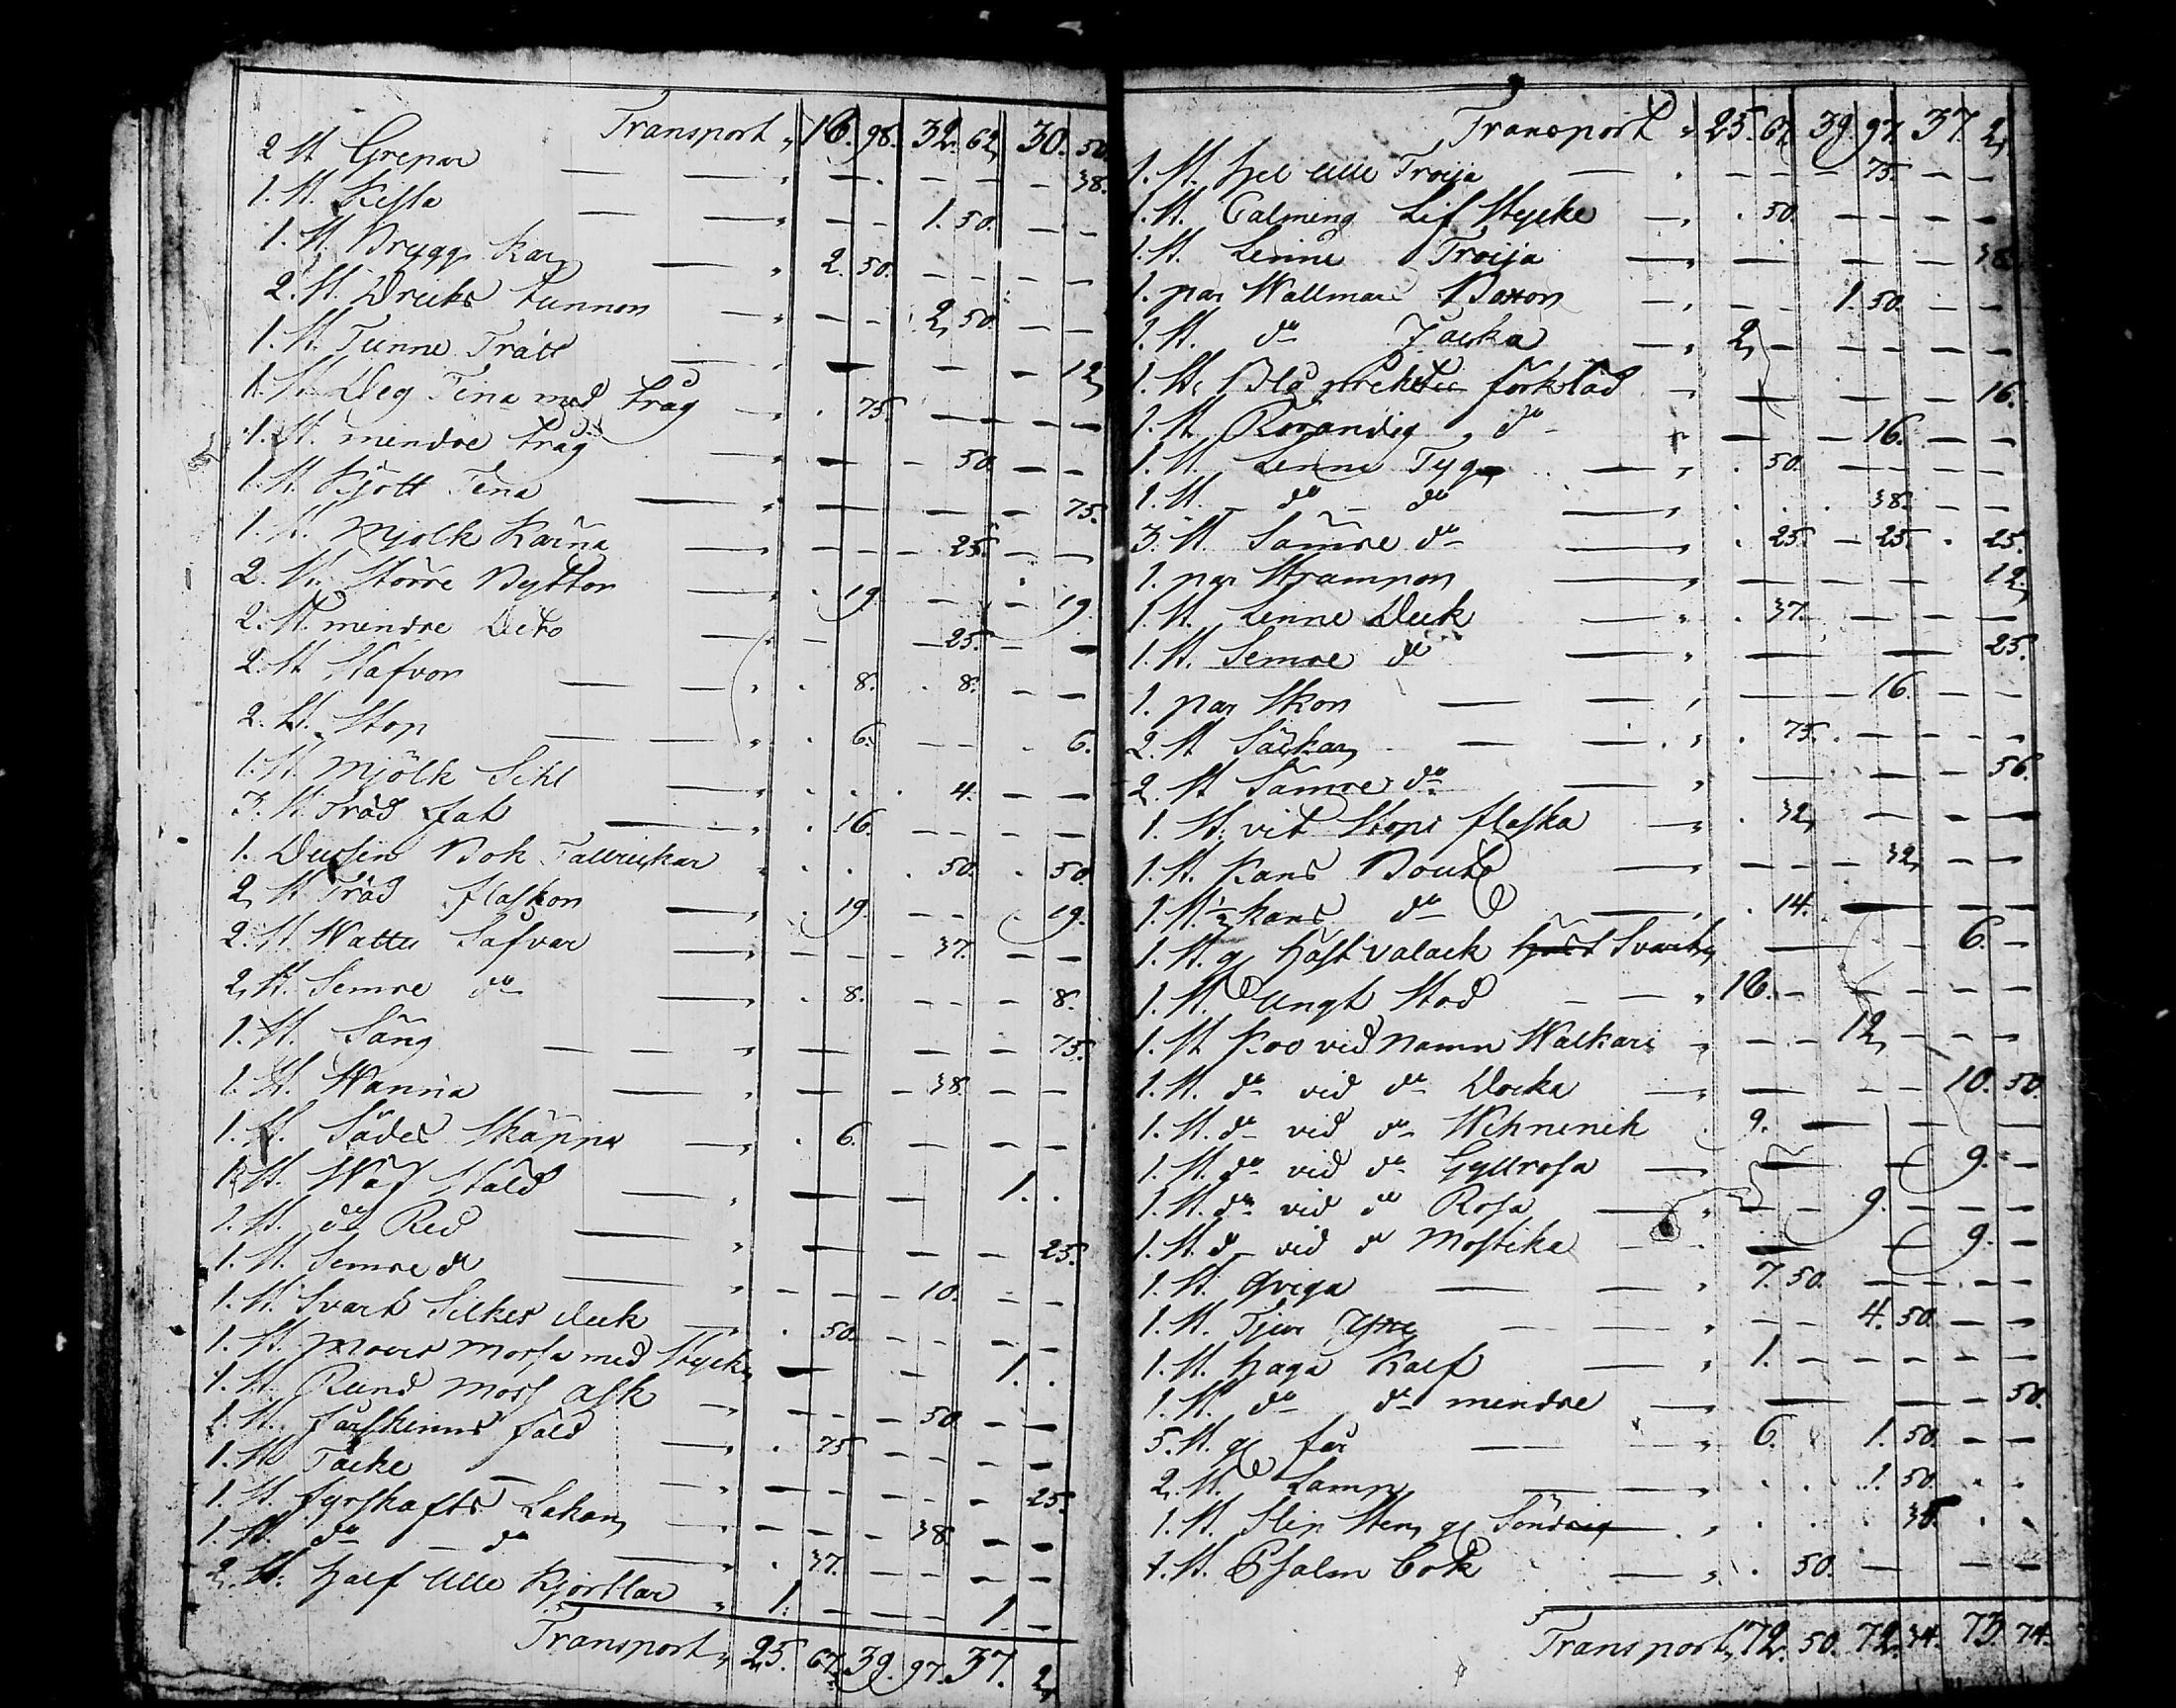 Transport " 16. 98. 32. 62, 30. 50.
2 St Grepar — — " — . — — — 38.
1. St. Kista — — " — — 1. 50. — —
1. St. Brygg Kar, — " 2. 50. — — — —
2. St. Dricks tunnon — " — — 2, 50 — —
1. St. Tunne Tratt — — — — 12,
1. St. Deg Tina med trag — " . 75. — — — —
1. St. mindre trag — " — — 50. — —
1. St. Kjött Tina — " — — — 75.
1. St. Mjolk Kärna — " — — — 25. — —
2. St. Större Byttor — " . 19. — — — 19.
2. St. mindre Dito — " — — 25. — —
2. St Stafvor — — " . 8. . 8. — —
2. St. Stop — — " . 6. — — . 6.
1. St. Mjölk Sihl — " . . . 4. — —
3. St Träd fat — " . 16. — — — —
1. Dusin Bok Tallrickar " . . . 50. . 50.
2, St Träd flaskon — " . 19. — — . 19.
2. St Wattu Säfvar — " — — — 37. — —
2, St. Semre do — " . 8. — — — 8.
1. St. Säng — — — " — — — 75.
1. St. Wanna — " — — 38. — —
1. St. Sädes Skäppa — " . 6. — — — —
1. St. Wäf Stald — " — — 1. .
1. St. do Red — " — — — 25.
1. St. Semre do — " — — — 10. — —
1. St. Svart Silkes duk — " . 50. — — — —
1. St. Moers Mossa med Stycke, — — 1. .
1. St. Rund Moss ask — " — — — 50. — —
1. St. fårskinns fäld — " . 75. — — — —
1. St Täcke — — " — — — — — 25.
1. St. fyrskafts Lakan, — " — — — 38 — —
1. St. do — do — " . 37. — — — —
2. St. Half Ulle Kjortlar " 1. — — — 1. —
Transport " 25. 67. 39. 97. 37. 2,
Transport " 25. 67, 39. 97. 37. 2,
1. St. hel Ulle Troija — . — — — 75. — —
1. St. Calming Lif Stycke — " . 50. — — — —
1. St. Linne Troija — " — — — 38.
1. par Wallmars Boxon — " — — 1. 50. — —
1. St. do Jacka — " 2, — — — — —
1. St. Blå förkläd — " — — — 16.
1. St. Rorandig " do — " — — 16. — —
1. St. Linne Tyg — " . 50. — — — —
1. St. do — do — " . . . 38. — —
3. St. Sämre do — " . 25. — 25. . 25.
1. par Strampon — " — — — 12,
1. St. Linne Duk — " . 37. — — — —
1. St. Semre do — " — — 25.
1. par Skon — — " — — 16. — —
2. St Säckar, — — . " . 75. . — — — —
2. St Sämre do — " — — — 56.
1. St. vit Stops flaska — " . 32, — — —
1. St. Kans Boutel — " — — — 32, — —
1. St. ½ Kans do — " . 14. — — —
1. St. gl Häst valack Häst Svart, — — — 6. —
1. St. Ungt Stod — — " 16. — — — — —
1. St Koo vid Namn Walkari " — — 12, — — —
1. St. do vid do Docka — " — — — 10. 50.
1. St. do vid do . 9. — — — —
1. St. do vid do Gyllrosa — " — — 9. —
1. St. do vid do Rosa — " — — 9. — — —
1. St. do vid do Mostika — . — — 9. —
1. St. Qviga — — " 7. 50. — — — —
1. St. Tjur — — " — — 4. 50. — —
1. St. haga Kalf — " 1. — — — — —
1. St. do do mindre — " — — — 50.
5. St. gl får — — " 6. 1. 50. — —
2. St. Lamn, — " . . 1. 50. . .
1. St. Slip Sten gl . " . . . 38. . .
1. St. Psalm bok — " . 50. — — —
Transport " 72. 50. 72. 34. 73. 74.